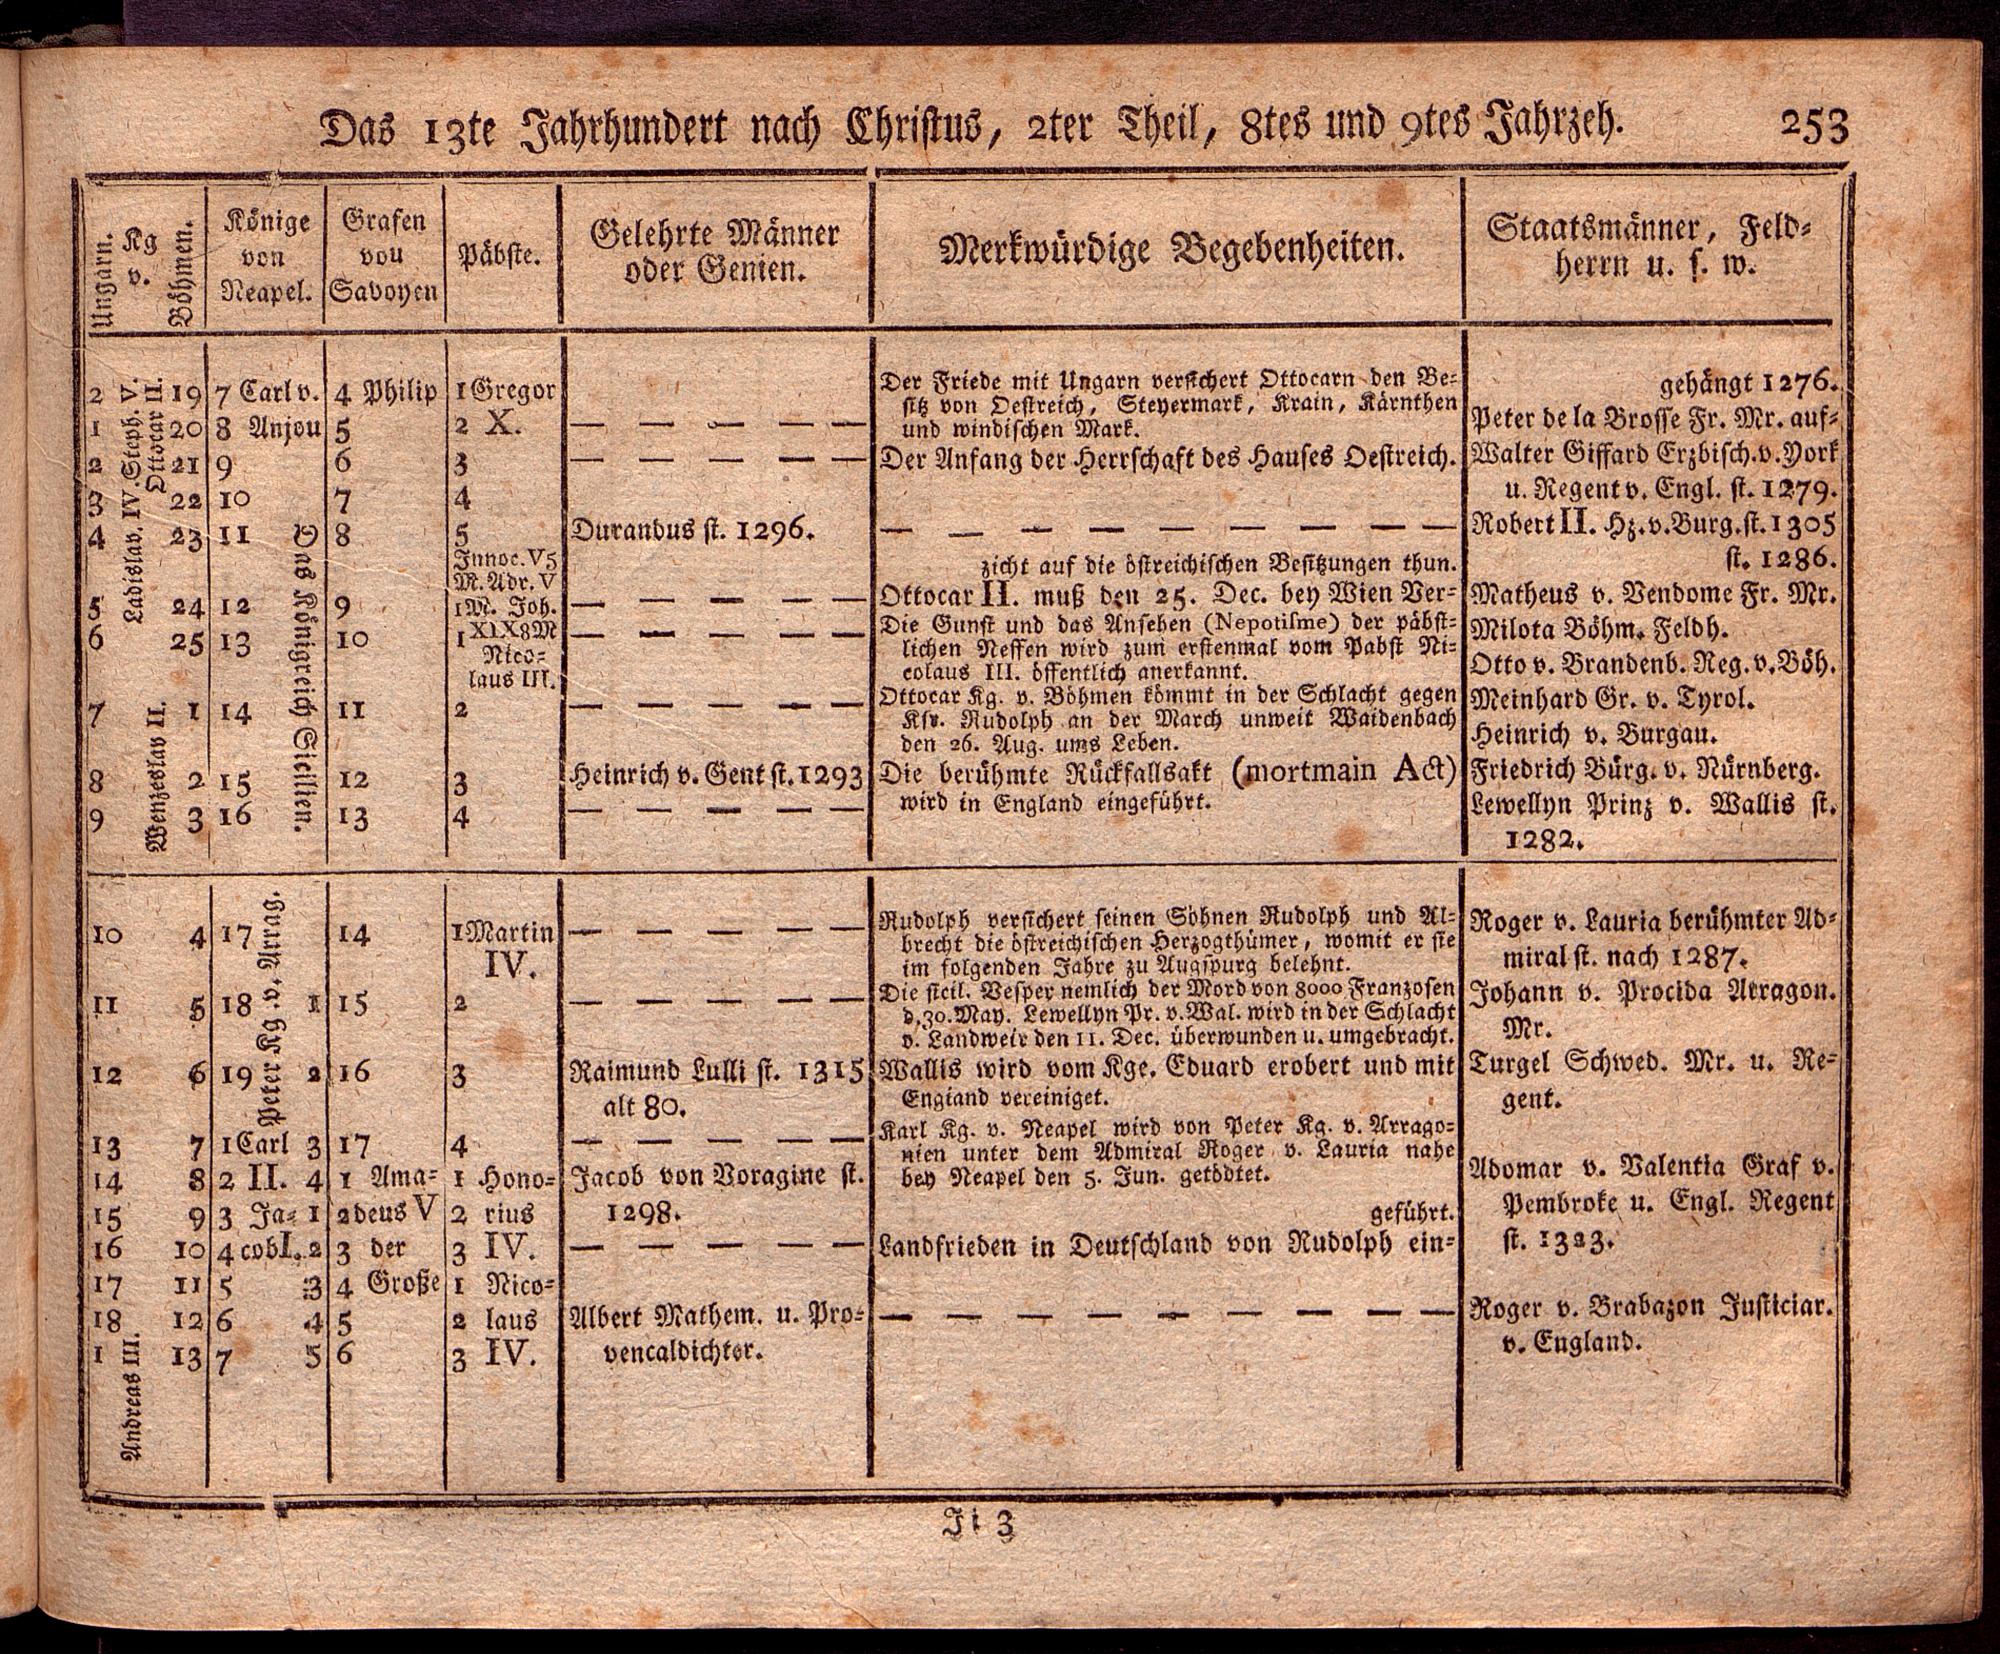 Das 13te Jahrhundert nach Christus, 2ter Theil, 8tes und 9tes Jahrzeh. 253
Ungarn.
Kg
v.
Böhmen.
Könige
von
Neapel.
Grafen
vou
Savoyen
Päbste.
Gelehrte Männer
oder Genien.
Merkwürdige Begebenheiten.
Staatsmänner, Feld=
herrn u. s. w.
Ladislav. IV. Steph. V.
Ottocar II.
Wenzeslav II.
Das Königreich Sicilien.
2 19 7 Carl v. 4 Philip 1 Gregor
1 20 8 Anjou 5 2 X. — — — — —
2 21 9 6 3 — — — — —
3 22 10 7 4
4 23 11 8 5 Durandus st. 1296.
Innoc. V 5
M. Adr. V
5 24 12 9 1 M. Joh. — — — — —
6 25 13 10 1 XIX 8 M — — — — —
Nico=
laus III.
7 1 14 11 2 — — — — —
8 2 15 12 3 Heinrich v. Gent st. 1293
9 3 16 13 4 — — — — —
Der Friede mit Ungarn versichert Ottocarn den Be=
sitz von Oestreich, Steyermark, Krain, Kärnthen
und windischen Mark.
Der Anfang der Herrschaft des Hauses Oestreich.
— — — — — — — — —
zicht auf die östreichischen Besitzungen thun.
Ottocar II. muß den 25. Dec. bey Wien Ver=
Die Gunst und das Ansehen (Nepotisme) der päbst=
lichen Neffen wird zum erstenmal vom Pabst Ni=
colaus III. öffentlich anerkannt.
Ottocar Kg. v. Böhmen kömmt in der Schlacht gegen
Ksr. Rudolph an der March unweit Waidenbach
den 26. Aug. ums Leben.
Die berühmte Rückfallsakt (mortmain Act)
wird in England eingeführt.
gehängt 1276.
Peter de la Brosse Fr. Mr. auf=
Walter Giffard Erzbisch. v. York
u. Regent v. Engl. st. 1279.
Robert II. Hz. v. Burg. st. 1305
st. 1286.
Matheus v. Vendome Fr. Mr.
Milota Böhm. Feldh.
Otto v. Brandenb. Reg. v. Böh.
Meinhard Gr. v. Tyrol.
Heinrich v. Burgau.
Friedrich Bürg. v. Nürnberg.
Lewellyn Prinz v. Wallis st.
1282.
Peter Kg. v. Arrag.
Andreas III.
10 4 17 14 1 Martin — — — — —
IV.
11 5 18 1 15 2 — — — — —
12 6 19 2 16 3 Raimund Lulli st. 1315
alt 80.
13 7 1 Carl 3 17 4 — — — — —
14 8 2 II. 4 1 Ama= 1 Hono= Jacob von Voragine st.
15 9 3 Ja= 1 2 deus V 2 rius 1298.
16 10 4 cob I. 2 3 der 3 IV. — — — — —
17 11 5 3 4 Große 1 Nico=
18 12 6 4 5 2 laus Albert Mathem. u. Pro=
1 13 7 5 6 3 IV. vencaldichter.
Rudolph versichert seinen Söhnen Rudolph und Al=
brecht die östreichischen Herzogthümer, womit er sie
im folgenden Jahre zu Augspurg belehnt.
Die sicil. Vesper nemlich der Mord von 8000 Franzosen
d. 30. May. Lewellyn Pr. v. Wal. wird in der Schlacht
v. Landweir den 11. Dec. überwunden u. umgebracht.
Wallis wird vom Kge. Eduard erobert und mit
England vereiniget.
Karl Kg. v. Neapel wird von Peter Kg. v. Arrago=
nien unter dem Admiral Roger v. Lauria nahe
bey Neapel den 5. Jun. getödtet.
geführt.
Landfrieden in Deutschland von Rudolph ein=
— — — — — — — — —
Roger v. Lauria berühmter Ad=
miral st. nach 1287.
Johann v. Procida Arragon.
Mr.
Turgel Schwed. Mr. u. Re=
gent.
Adomar v. Valentia Graf v.
Pembroke u. Engl. Regent
st. 1323.
Roger v. Brabazon Justiciar.
v. England.
Ii 3